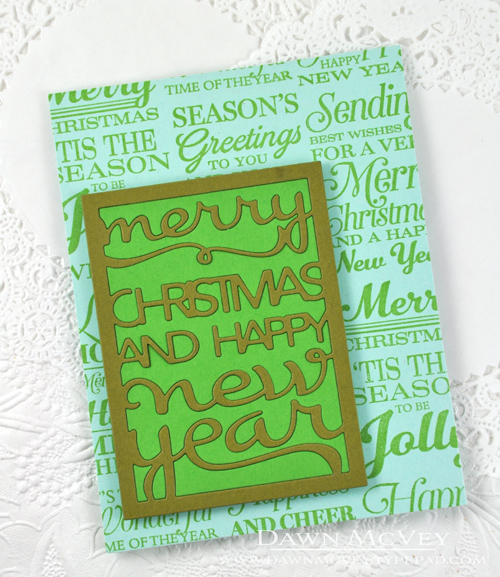 Merry
CHRISTMAS
'TIS THE
SEASON
TO BE
TIME OF THE YEAR
SEASON'S
Greetings
TO YOU
HAPPY
NEW YEAR
Sending
BEST WISHES
FOR A VE
Merry
Christmas
AND A HAPP
New Year
Merry
CHRISTMAS
'TIS THE
SEASON
TO BE
Jolly
Happ
merry
CHRISTMAS
AND HAPPY
new
year
Wonderful
TIME OF THE YEAR
Happiness
AND CHEER
DAWN MCVEY
WWW.DAWNMCVEY.TYPEPAD.COM